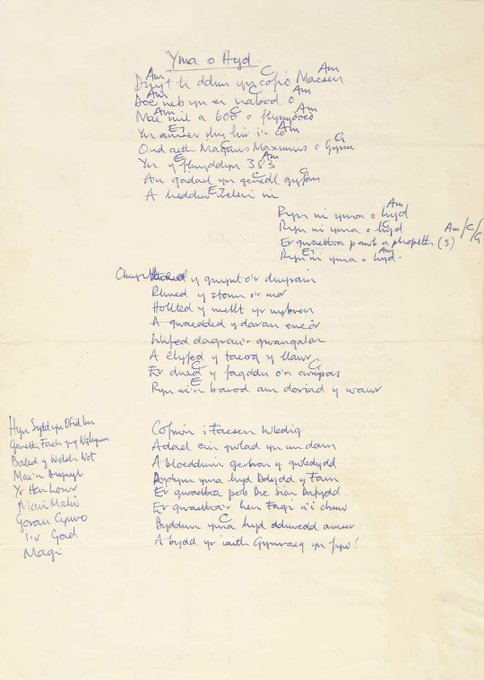 Yma o Hyd
Am C Am
Dwyt ti ddim yn cofio Macsen
Am C Am
Does neb yn ei nabod o
Am C Am
Mae mil a 600 o flynyddoedd
E7 Am
Yn amser rhy hir i'r co
G
Ond aeth Magnus Maximus o Gymru
E Am
Yn y flwyddyn 383
C G
A'n gadael yn genedl gyfan
E7
A heddiw wele ni
Am
Ryn ni yma o hyd
C
Ryn ni yma o hyd
Am/C/G
Er gwaetha pawb a phopeth (3)
E7 Am
Ryn ni yma o hyd.
Chwythed y gwynt o'r dwyrain
Rhued y storm o'r mor
Hollted y mellt yr wybren
A gwaedded y daran encôr
Llifed dagrau'r gwangalon
A llyfed y taeog y llawr
C G
Er dued y fagddu o'n cwmpas
E
Ryn ni'n barod am doriad y wawr
Cofiwn i Facsen Wledig
Adael ein gwlad yn un darn
A bloeddiwn gerbron y gwledydd
Byddwn yma hyd Ddydd y Farn
Er gwaetha pob Dic Sion Dafydd
Er gwaetha'r hen Fagi a'i chriw
C
Byddwn yma hyd ddiwedd amser
A bydd yr iaith Gymraeg yn fyw!
Hyn Sydd yn Ofid Im
Geneth Fach
Baled y Welsh Not
Mae'n Disgwyl
Yr Hen
Mari Malŵ
Gorau Cymro
I'r Gad
Magi